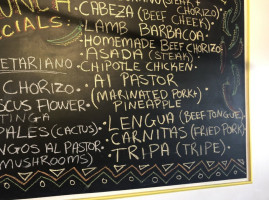 UNCH
ECIALS:
ETARIANO
CHORIZO
SCUS FLOWER
TINGA
PALES (CACTUS)
NGOS AL PASTOR
MUSHROOMS)
CHORIZO)
CABEZA (BEEF CHEEK)
LAMB BARBACOA
HOMEMADE BEEF CHORIZO
ASADA (STEAK)
CHIPOTLE CHICKEN
Al PASTOR
(MARINATED PORK &
PINEAPPLE
LENGUA (BEEF TONGUE)
CARNITAS (FRIED PORK)
TRIPA (TRIPE)